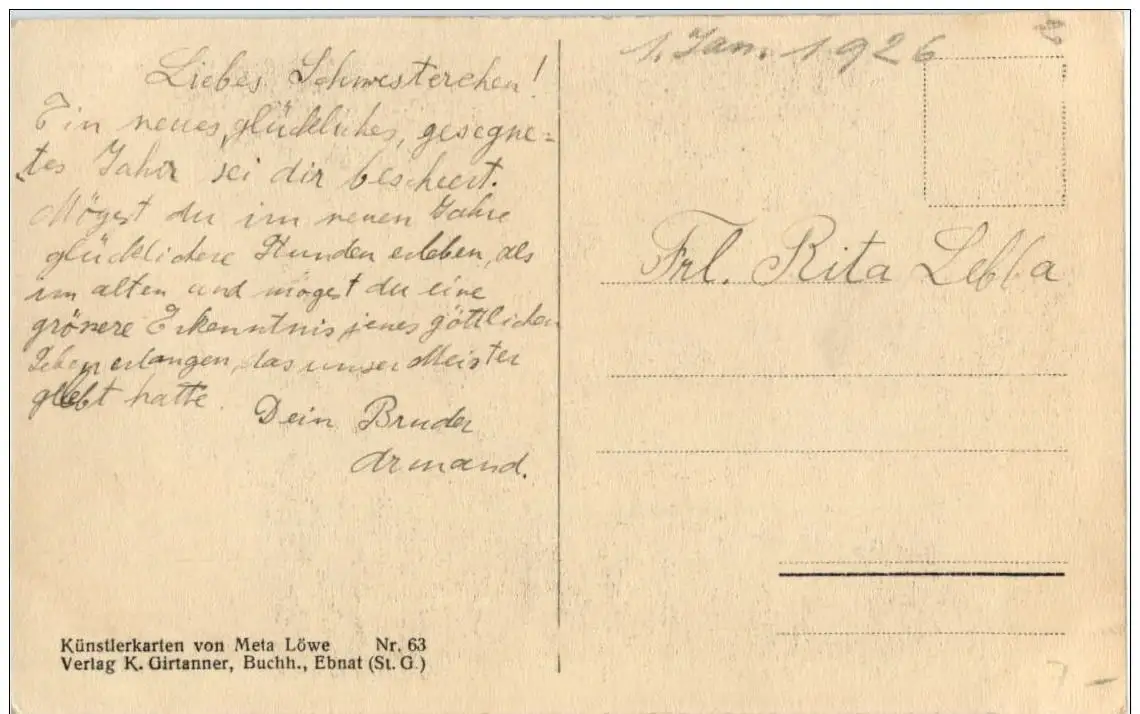 Liebes Schwesterchen!
Ein neues, glückliches, gesegne=
tes Jahr sei dir beschert.
Mögest du im neuen Jahre
glücklichere Stunden erleben, als
im alten und mögest du eine
grössere Erkenntnis jenes göttlichen
Leben erlangen, das unser Meister
gelebt hatte.
Dein Bruder
Armand.
1. Jan. 1926
Frl. Rita
Künstlerkarten von Meta Löwe Nr. 63
Verlag K. Girtanner, Buchh., Ebnat (St. G.)